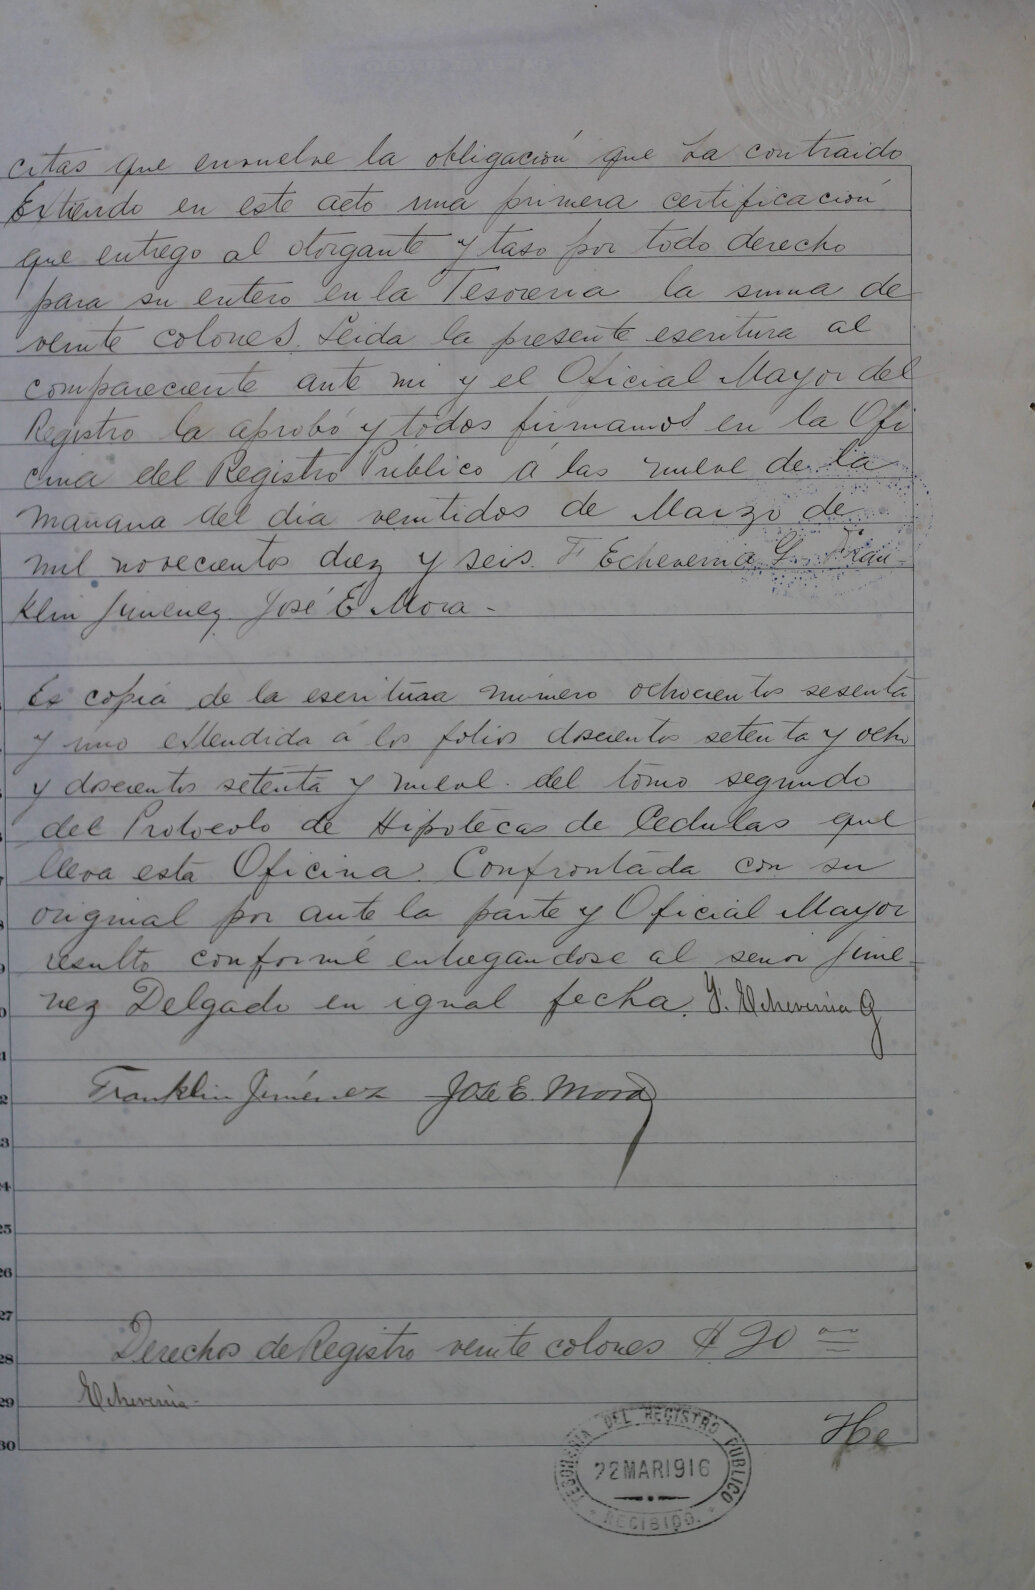 citas que envuelve la obligación que ha contraido
Extiendo en este acto una primera certificación
que entrego al otorgante y taso por todo derecho
para su entero en la Tesoreria la suma de
veinte colones. Leida la presente escritura al
compareciente ante mi y el Oficial Mayor del
Registro la aprobó y todos firmamos en la Ofi
cina del Registro Publico á las nueve de la
mañana del dia veintidos de Marzo de
mil novecientos diez y seis. F Echeverria G. Fran-
klin Jimenez. José E Mora-
Es copia de la escritura número ochocientos sesenta
y uno extendida á los folios doscientos setenta y ocho
y doscientos setenta y nueve del tomo segundo
del Protocolo de Hipotecas de Cedulas que
lleva esta Oficina. Confrontada con su
original por ante la parte y Oficial Mayor
resulto conforme entregandose al señor Jime-
nez Delgado en igual fecha. F. Echeverria G
Franklin Jiménez José E. Mora
23
24
25
26
27
Derechos de Registro veinte colones ₡ 20
28
29 Echeverria-
30 He
TESORERIA DEL REGISTRO PUBLICO
22 MAR 1916
- RECIBIDO. -